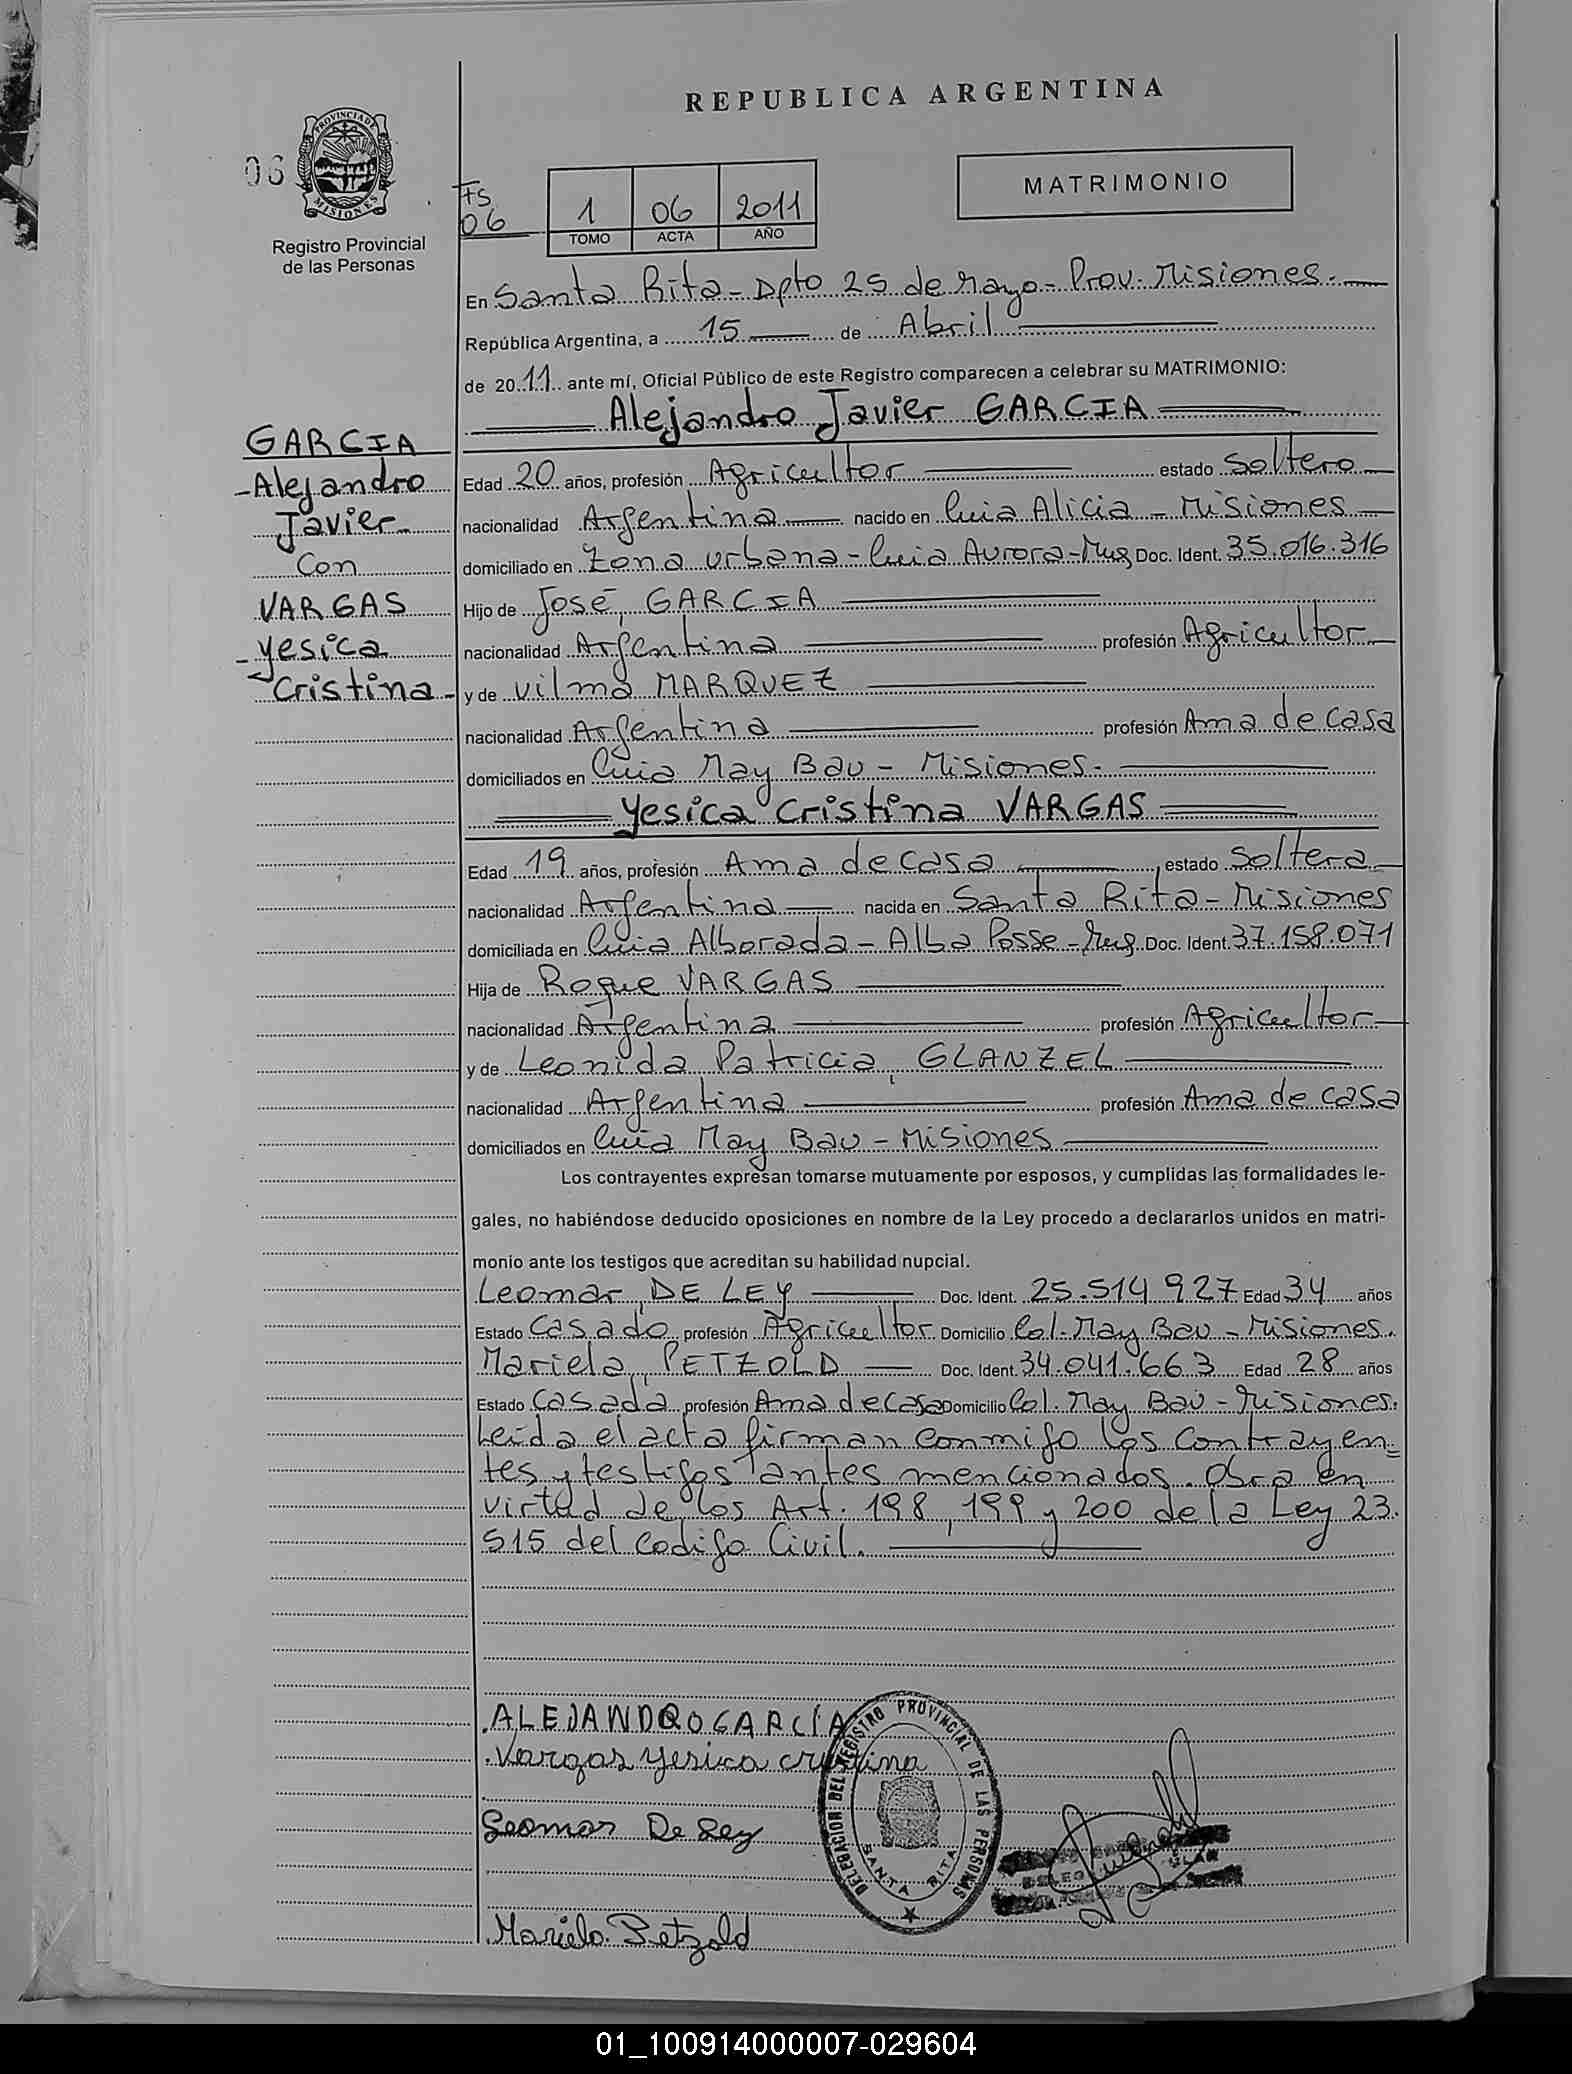 REPUBLICA ARGENTINA
06
PROVINCIA DE MISIONES
Registro Provincial
de las Personas
FS
06
1 06 2011
TOMO ACTA AÑO
MATRIMONIO
En Santa Rita - Dpto 25 de Mayo - Prov. Misiones.
República Argentina, a 15 de Abril
de 2011 ante mí, Oficial Público de este Registro comparecen a celebrar su MATRIMONIO:
Alejandro Javier GARCIA
GARCIA
-Alejandro
Javier-
Con
VARGAS
-Yesica
Cristina-
Edad 20 años, profesión Agricultor estado Soltero
nacionalidad Argentina nacido en Cnia Alicia - Misiones
domiciliado en Zona urbana - Cnia Aurora - Mns Doc. Ident. 35.016.316
Hijo de José, GARCIA
nacionalidad Argentina profesión Agricultor
y de Vilma MARQUEZ
nacionalidad Argentina profesión Ama de casa
domiciliados en Cnia May Bau - Misiones.
Yesica Cristina VARGAS
Edad 19 años, profesión Ama de casa estado Soltera
nacionalidad Argentina nacida en Santa Rita - Misiones
domiciliada en Cnia Alborada - Alba Posse - Mns. Doc. Ident. 37.158.071
Hija de Roque VARGAS
nacionalidad Argentina profesión Agricultor
y de Leonida Patricia, GLANZEL
nacionalidad Argentina profesión Ama de casa
domiciliados en Cnia May Bau - Misiones
Los contrayentes expresan tomarse mutuamente por esposos, y cumplidas las formalidades le-
gales, no habiéndose deducido oposiciones en nombre de la Ley procedo a declararlos unidos en matri-
monio ante los testigos que acreditan su habilidad nupcial.
Leomar, DE LEY Doc. Ident. 25.514.927 Edad 34 años
Estado Casado profesión Agricultor Domicilio Col. May Bau - Misiones.
Mariela, PETZOLD Doc. Ident. 34.041.663 Edad 28 años
Estado Casada profesión Ama de Casa Domicilio Col. May Bau - Misiones.
Leída el acta firman conmigo los Contrayen=
tes y testigos antes mencionados. Obra en
virtud de los Art. 198, 199 y 200 de la Ley 23.
515 del Codigo Civil.
ALEJANDRO GARCÍA
Vargas Yesica Cristina
Leomar De Ley
Mariela Petzold
DELEGACION DEL REGISTRO PROVINCIAL DE LAS PERSONAS
SANTA RITA
01_100914000007-029604